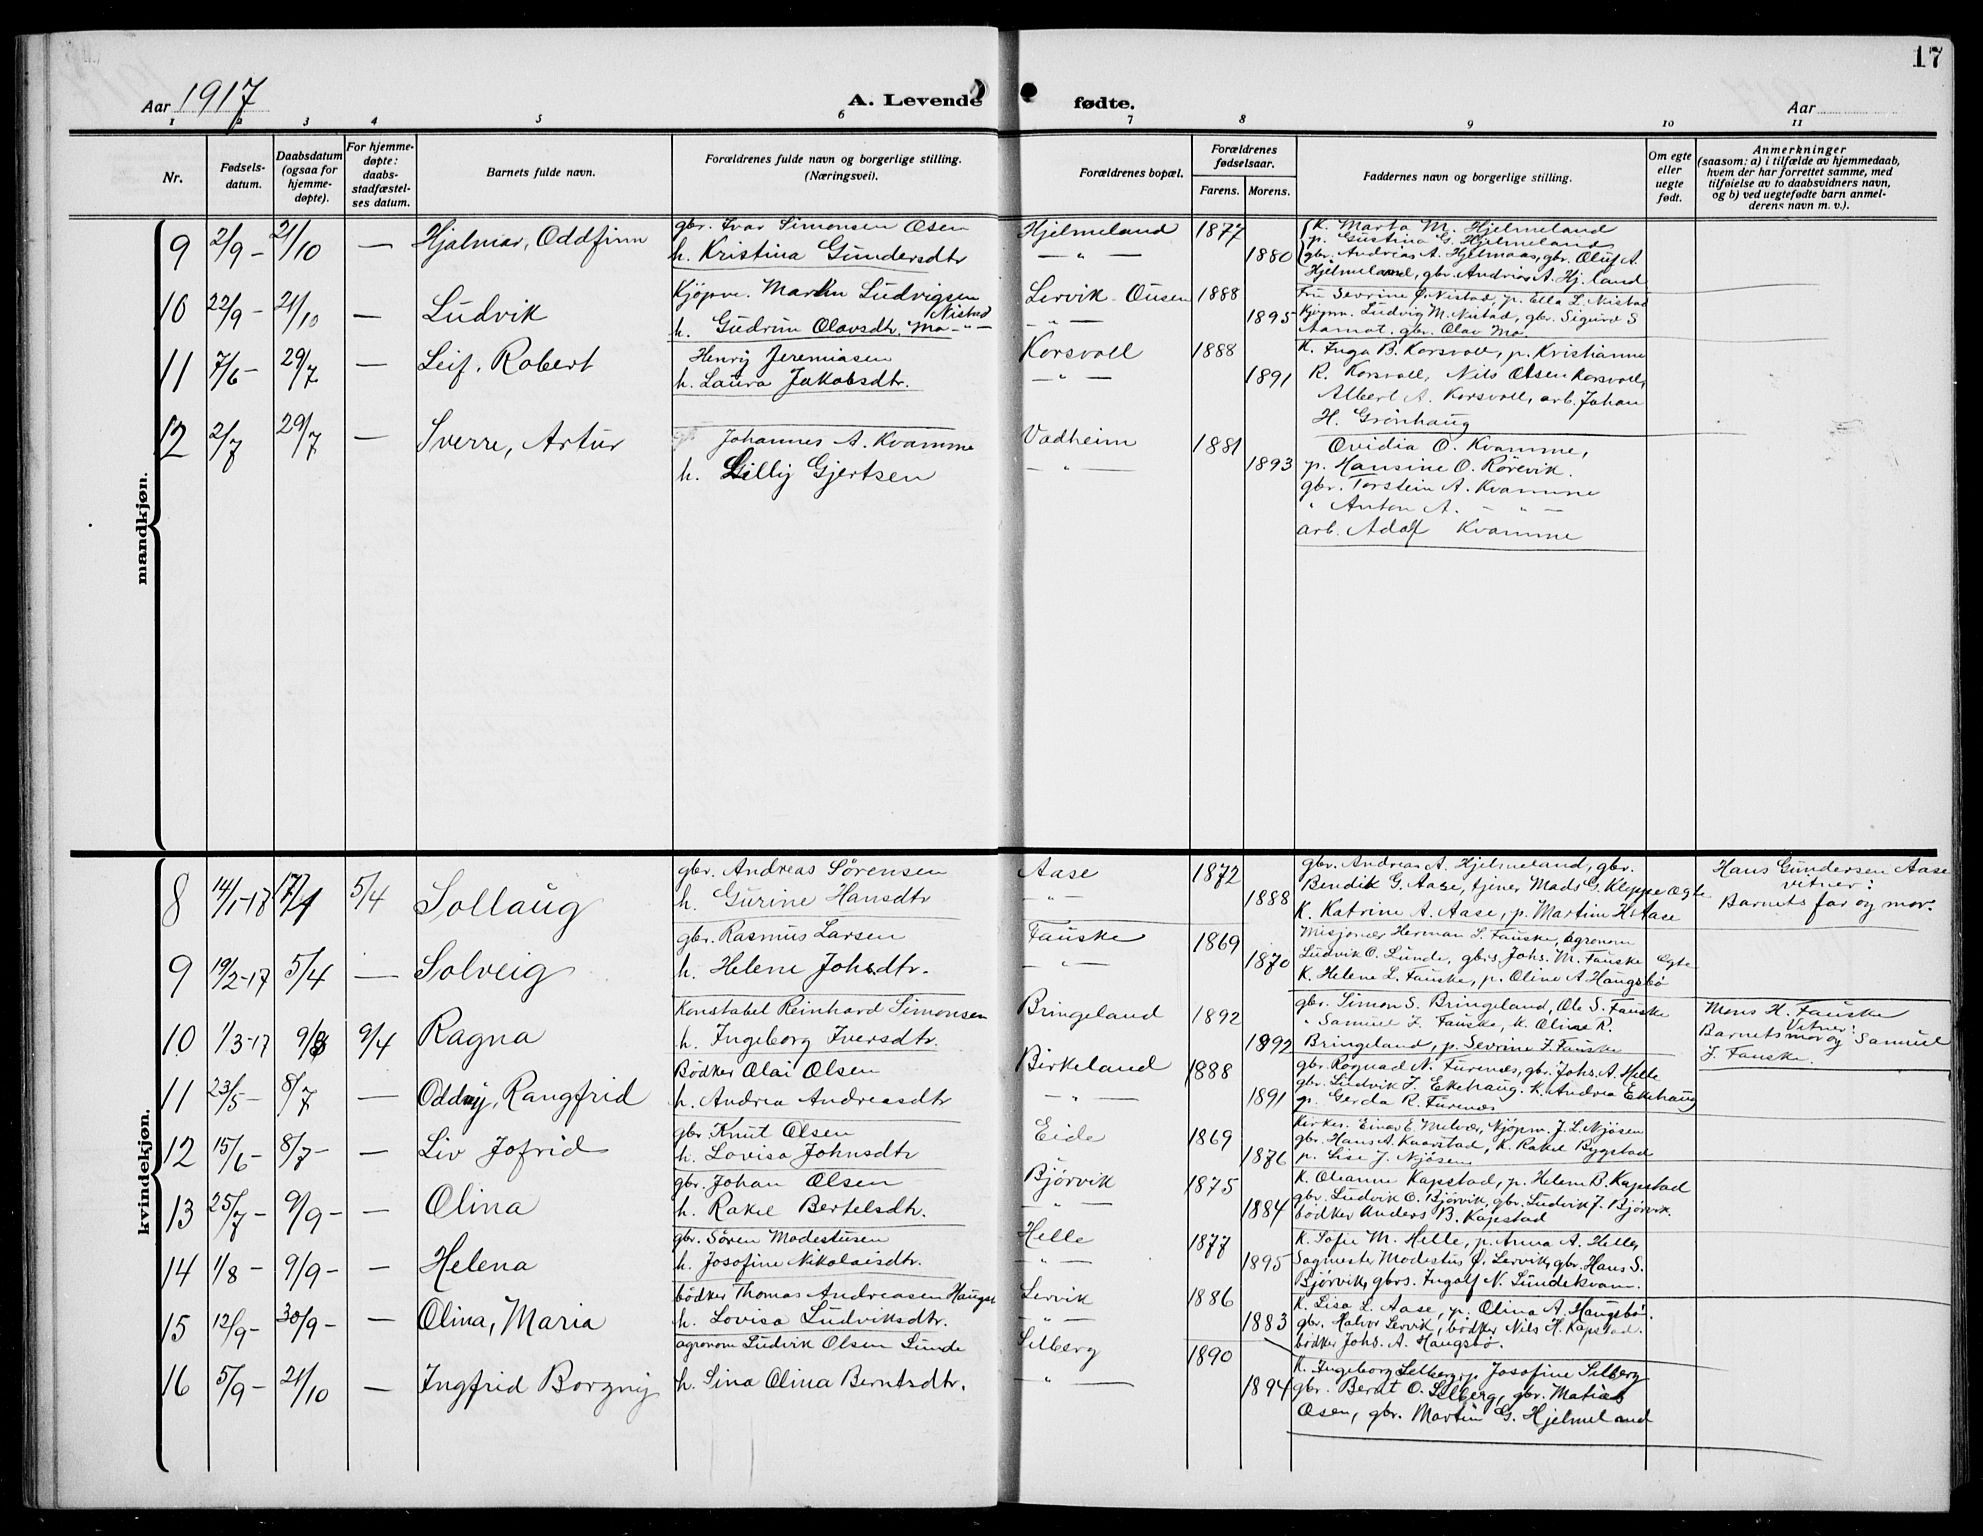 17
Aar 1917
A. Levende fødte.
Aar
1 2 3 4 5 6 7 8 9 10 11
Nr.
Fødsels-
datum.
Daabsdatum
(ogsaa for
hjemme-
døpte).
For hjemme-
døpte:
daabs-
stadfæstel-
ses datum.
Barnets fulde navn.
Forældrenes fulde navn og borgerlige stilling.
(Næringsvei).
Forældrenes bopæl.
Forældrenes
fødselsaar.
Farens. Morens.
Faddernes navn og borgerlige stilling.
Om egte
eller
uegte
født.
Anmerkninger
(saasom: a) i tilfælde av hjemmedaab,
hvem der har forrettet samme, med
tilføielse av to daabsvidners navn,
og b) ved uegtefødte barn anmel-
derens navn m. v.).
mandkjøn.
9 2/9 - 21/10 — Hjalmar, Oddfinn
gbr. Ivar Simonsen Osen
h. Kristina Gundersdtr
Hjelmeland 1877
— " — 1880
K. Marta M. Hjelmeland
p. Gustina G. Hjelmeland
gbr. Andreas A. Hjelmaas, gbr. Oluf A.
Hjelmeland, gbr. Andrias A. Hj.land
10 22/9 - 21/10 — Ludvik
Kjøpm. Martin Ludvigsen
Nistad
h. Gudrun Olavsdtr. Mo - " -
Lervik - Ousen 1888
- " - 1895
Fru Sevrine Ø. Nistad, p. Ella L. Nistad
Kjøpm. Ludvig M. Nistad, gbr. Sigurd S
Aamot. gbr. Olav Mo.
11 7/6 - 29/7 — Leif, Robert
Henrij Jeremiasen
h. Laura Jakobsdtr.
Korsvoll 1888
— " — 1891
K. Inga B. Korsvoll, p. Kristianne
R. Korsvoll, Nils Olsen Korsvoll,
Albert A. Korsvoll, arb. Johan
H. Grønhaug
12 2/7 29/7 — Sverre, Artur
Johannes A. Kvamme
h. Lillij Gjertsen
Vadheim 1881
— " — 1893
Ovidia O. Kvamme,
p. Hansine O. Rörevik.
gbr. Torstein A. Kvamme
" Anton A. - " -
arb. Adolf Kvamme
kvindekjøn.
8 14/1-18 17/1 5/4 Sollaug
gbr. Andreas Sørensen
h. Gurine Hansdtr
Aase 1872
- " - 1888
gbr. Andreas A. Hjelmeland, gbr.
Bendik G. Aase, tjener Mads G. Kleppe Egte
K. Katrine A. Aase, p. Martine H. Aase
Hans Gundersen Aase
vitner:
Barnets far og mor.
9 19/2-17 5/4 — Solveig
gbr. Rasmus Larsen
h. Helene Johsdtr.
Fauske 1869
- " - 1870
Misjonær Herman L. Fauske, agronom
Ludvik O. Lunde, gbrs. Johs. M. Fauske Egte
K. Helene L. Fauske, p. Oline A. Haugsbø
10 1/3-17 9/3 9/4 Ragna
Konstabel Reinhard Simonsen
h. Ingeborg Iversdtr.
Bringeland 1892
1892
gbr. Simon S. Bringeland, Ole S. Fauske
" Samuel J. Fauske, K. Oline R.
Bringeland, p. Sevrine J. Fauske
Mons H. Fauske
Vitner:
Barnets mor og Samuel
J. Fauske.
11 23/5 - 8/7 — Oddnij, Rangfrid
Bødker Olai Olsen
h. Andrea Andreasdtr
Birkeland 1888
- " - 1891
gbr. Rognad N. Furenæs, gbr. Johs. A. Helle
gbr. Ludvik J. Ekehaug. K. Andrea Ekehaug
p. Gerda R. Furenæs
12 15/6 - 8/7 - — Liv Jofrid
gbr. Knut Olsen
h. Lovisa Johnsdtr
Eide 1869
1876
Kirkes. Einar E. Melvær, Kjøpm. J. L. Njøsen
gbr. Hans A. Kaarstad, K. Rakel Bygstad
p. Lise J. Njøsen
13 25/7 - 9/9 - — Olina
gbr. Johan Olsen
h. Rakel Bertelsdtr.
Bjørvik 1875
- " - 1884
K. Oleanne Kapstad, p. Helene B. Kapstad
gbr. Ludvik O. Bjørvik, gbr. Ludvik J. Bjørvik.
bødker Anders B. Kapstad
14 1/8 - 9/9 - — Helena
gbr. Søren Modestusen
h. Josofine Nikolaisdtr.
Helle 1877
- " - 1895
K. Sofie M. Helle, p. Anna A. Helle,
Sagmester Modestus Ø. Lervik, gbr. Hans S.
Bjørvik, gbrs. Ingolf N. Lundekvam.
15 12/9 - 30/9 - — Olina, Maria
bødker Thomas Andreasen Haugs
h. Lovisa Ludviksdtr.
Lervik 1886
- " - 1883
K. Lisa L. Aase, p. Olina A. Haugsbø.
gbr. Halvor Lervik, bødker Nils H. Kapstad.
bødker Johs. A. Haugsbø.
16 5/9 - 21/10 — Ingfrid Borgnij
agronom Ludvik Olsen Lunde
h. Sina Olina Berntsdtr.
Selberg 1890
— " — 1894
K. Ingeborg Selberg, p. Josofine Selberg
gbr. Bernt O. Selberg, gbr. Matias
Osen, gbr. Martin G. Hjelmeland